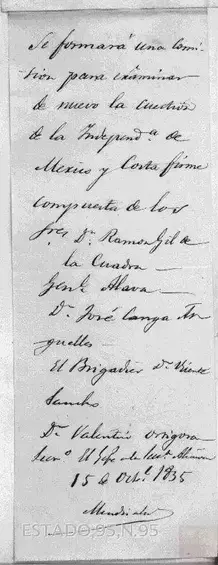 Se formará una Comi
sion para examinar
de nuevo la cuestion
de la Independ.a de
Mexico y Costa firme
compuesta de los
Sres. Dn. Ramon Gil de
la Cuadra —
Genl. Alava —
Dn. José Canga Ar
guelles —
El Brigadier Dn. Vicente
Sancho
Dn. Valentin Origora
Secro. El Gefe de
15 de Octe. 1835
Mendizabal
ESTADO,95,N.95